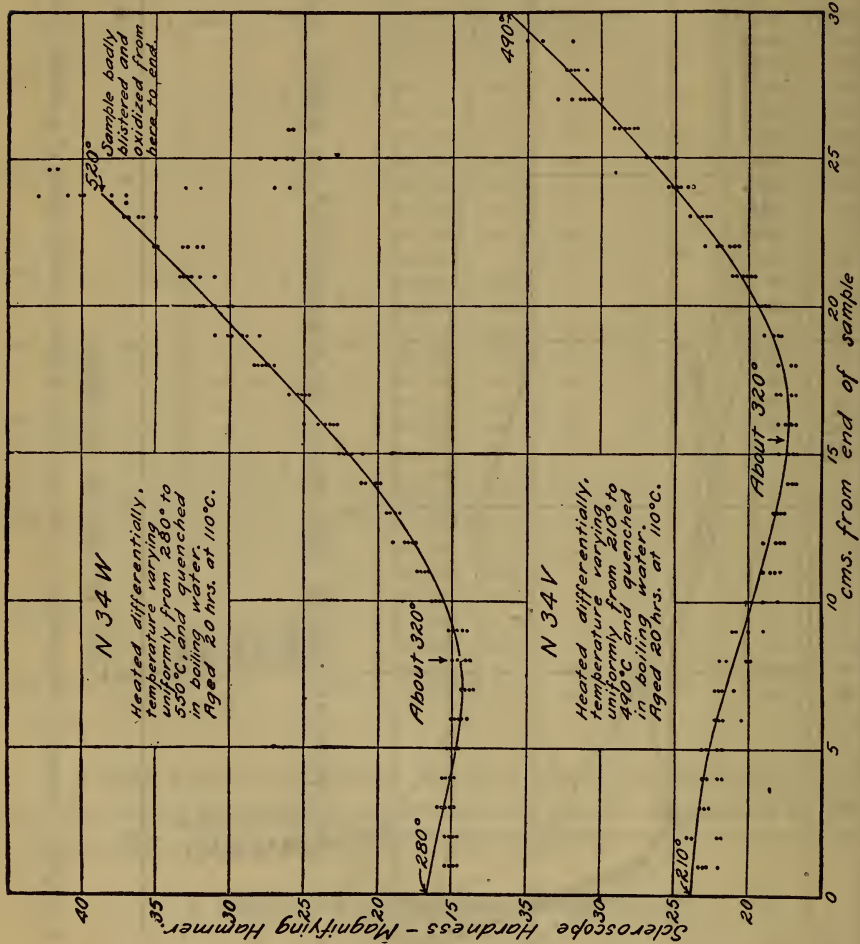 520°
Sample badly
blistered and
oxidized from
here to end.
490°
N 34 W
Heated differentially,
temperature varying
uniformly from 280° to
530°C, and quenched
in boiling water.
Aged 20 hrs. at 110°C.
About 320°
280°
N 34 V
Heated differentially,
temperature varying
uniformly from 210° to
490°C and quenched
in boiling water.
Aged 20 hrs. at 110°C.
About 320°
210°
40
35
30
25
20
15
30
25
20
Scleroscope Hardness - Magnifying Hammer.
0
5
10
15
20
25
30
cms. from end of sample